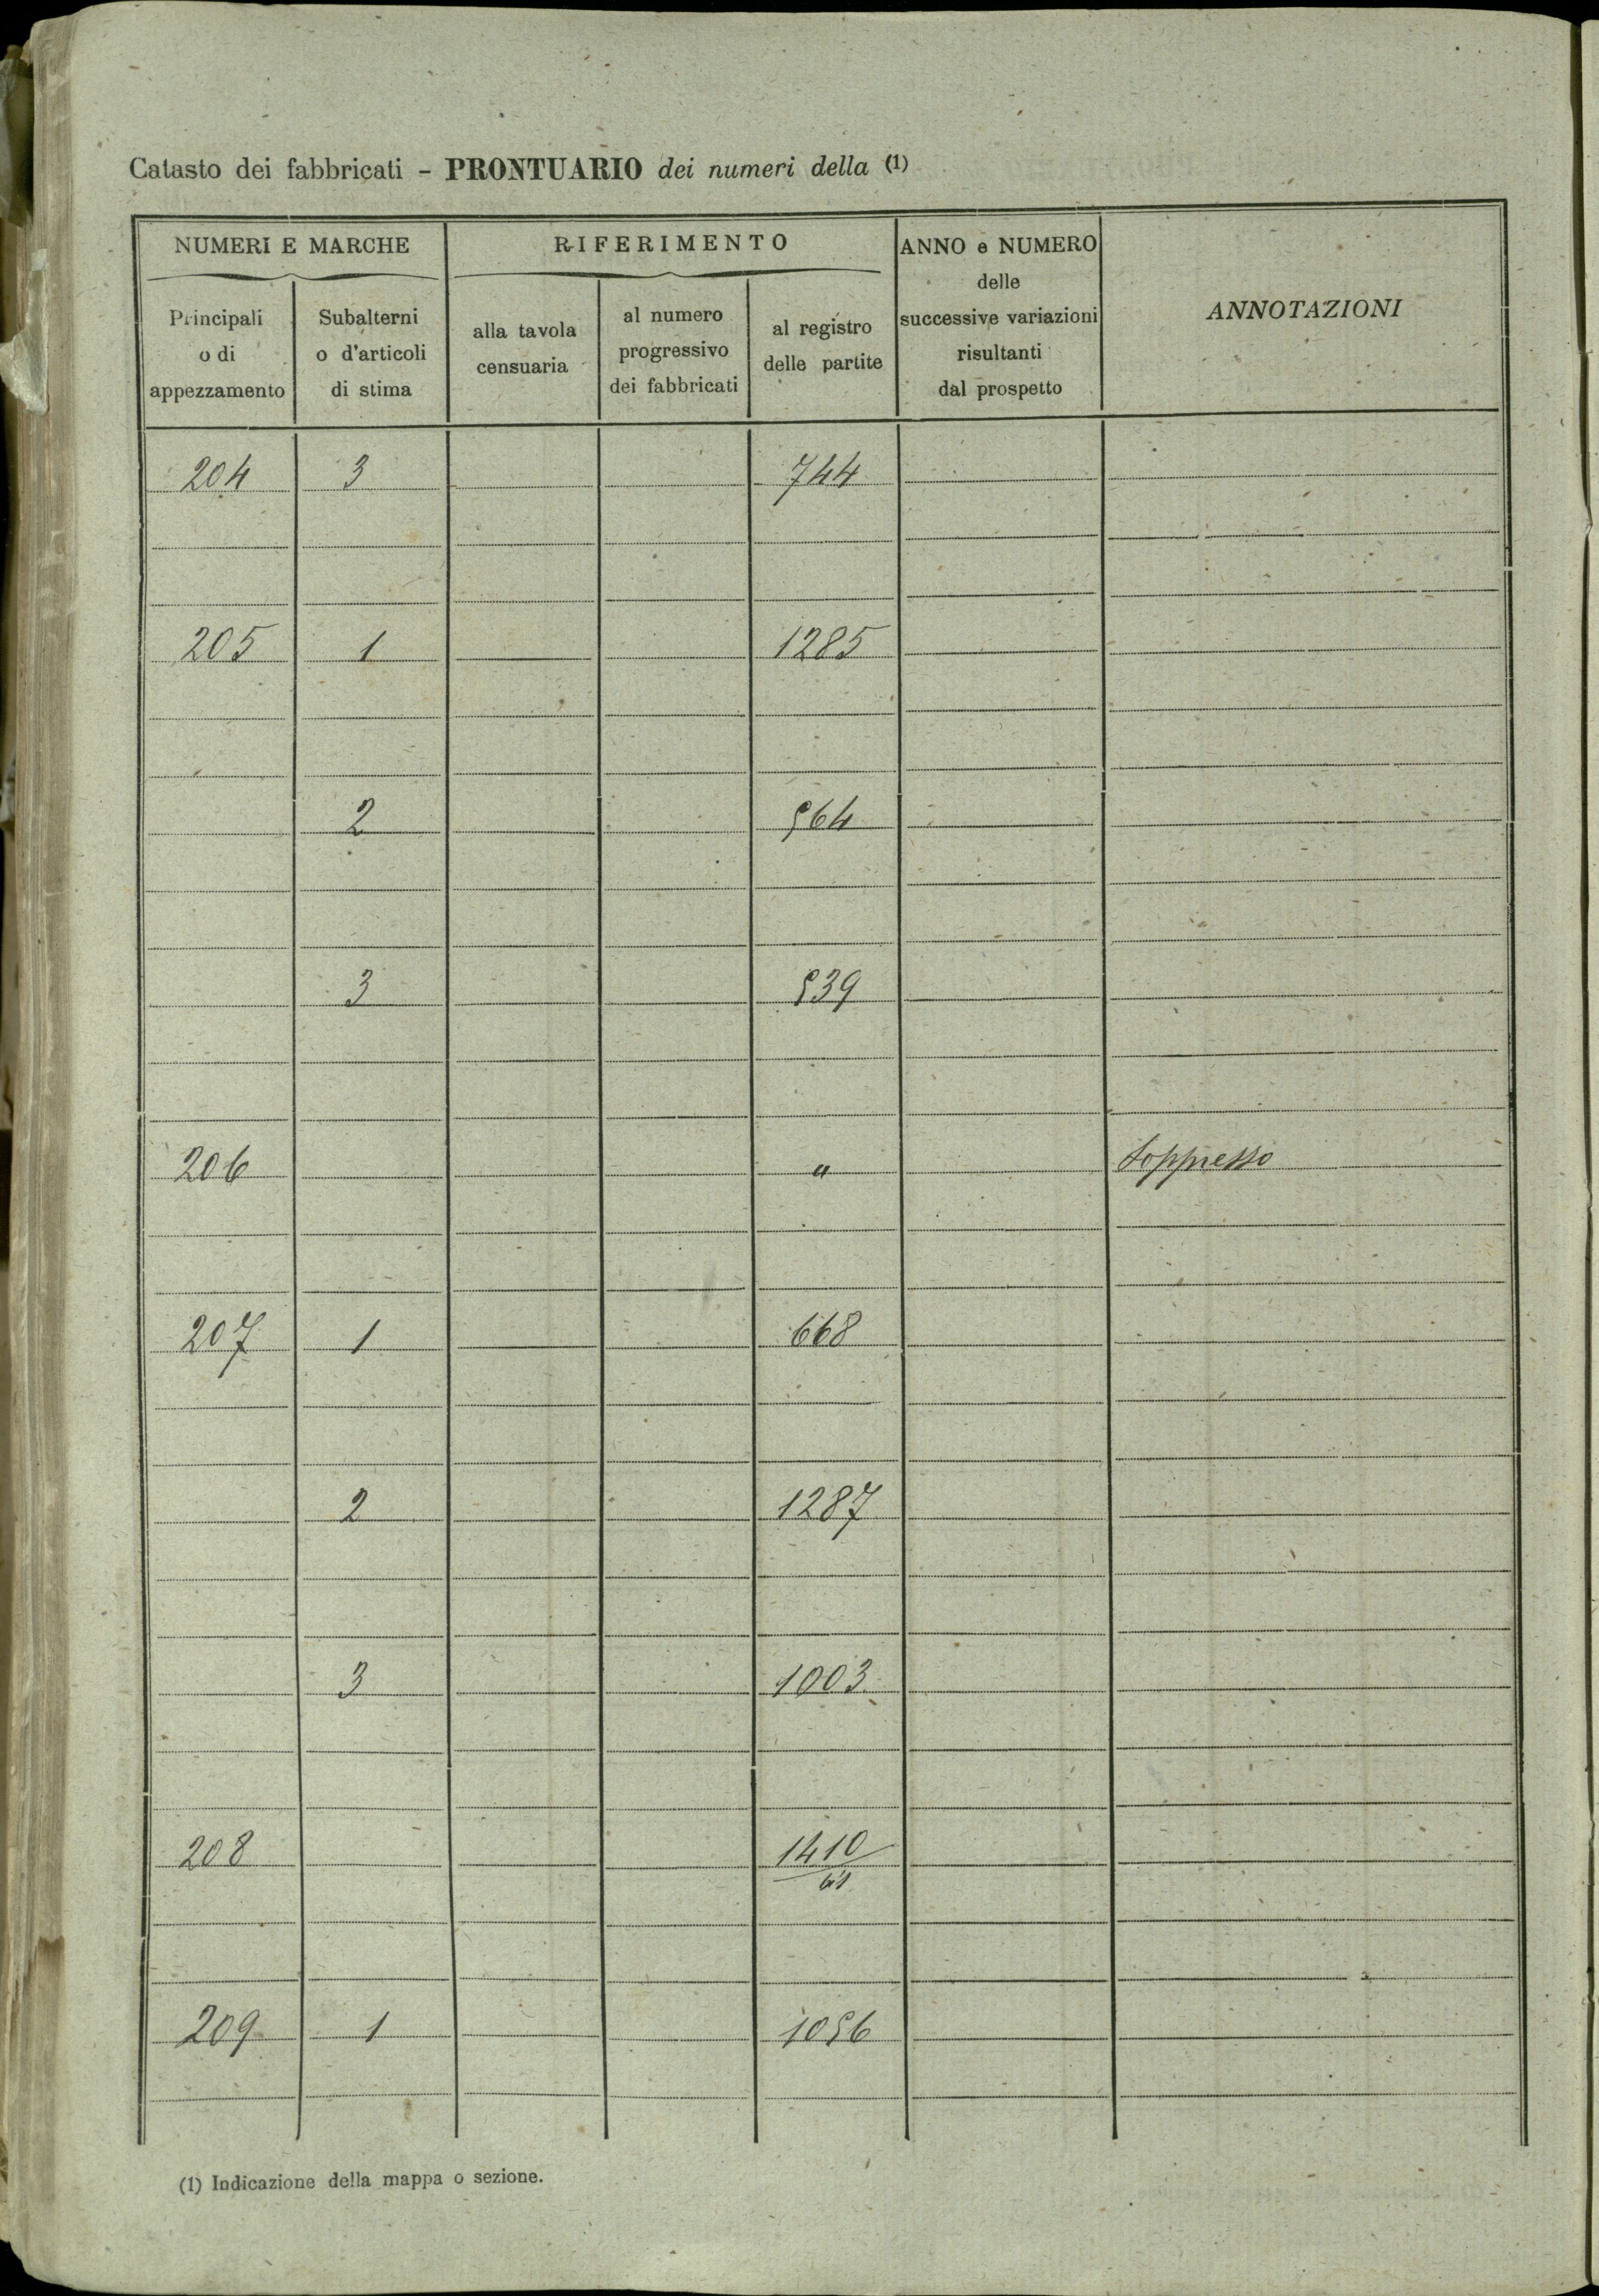 Catasto dei fabbricati - PRONTUARIO dei numeri della (1)
NUMERI E MARCHE
RIFERIMENTO
ANNO e NUMERO
delle
successive variazioni
risultanti
dal prospetto
ANNOTAZIONI
Principali
o di
appezzamento
Subalterni
o d'articoli
di stima
alla tavola
censuaria
al numero
progressivo
dei fabbricati
al registro
delle partite
204 3 744
205 1 1285
2 564
3 539
206 " Soppresso
207 1 668
2 1287
3 1003
208 1410
bis
209 1 1056
(1) Indicazione della mappa o sezione.